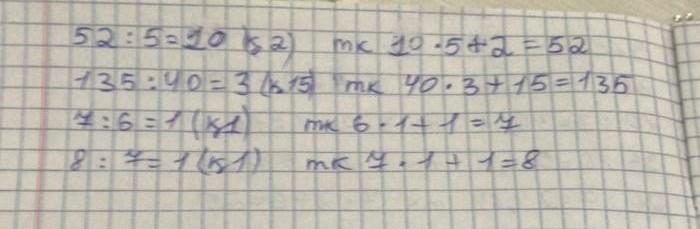 52 : 5 = 10 (қ 2) тк 10 · 5 + 2 = 52
135 : 40 = 3 (қ 15) тк 40 · 3 + 15 = 135
7 : 6 = 1 (қ 1) тк 6 · 1 + 1 = 7
8 : 7 = 1 (қ 1) тк 7 · 1 + 1 = 8